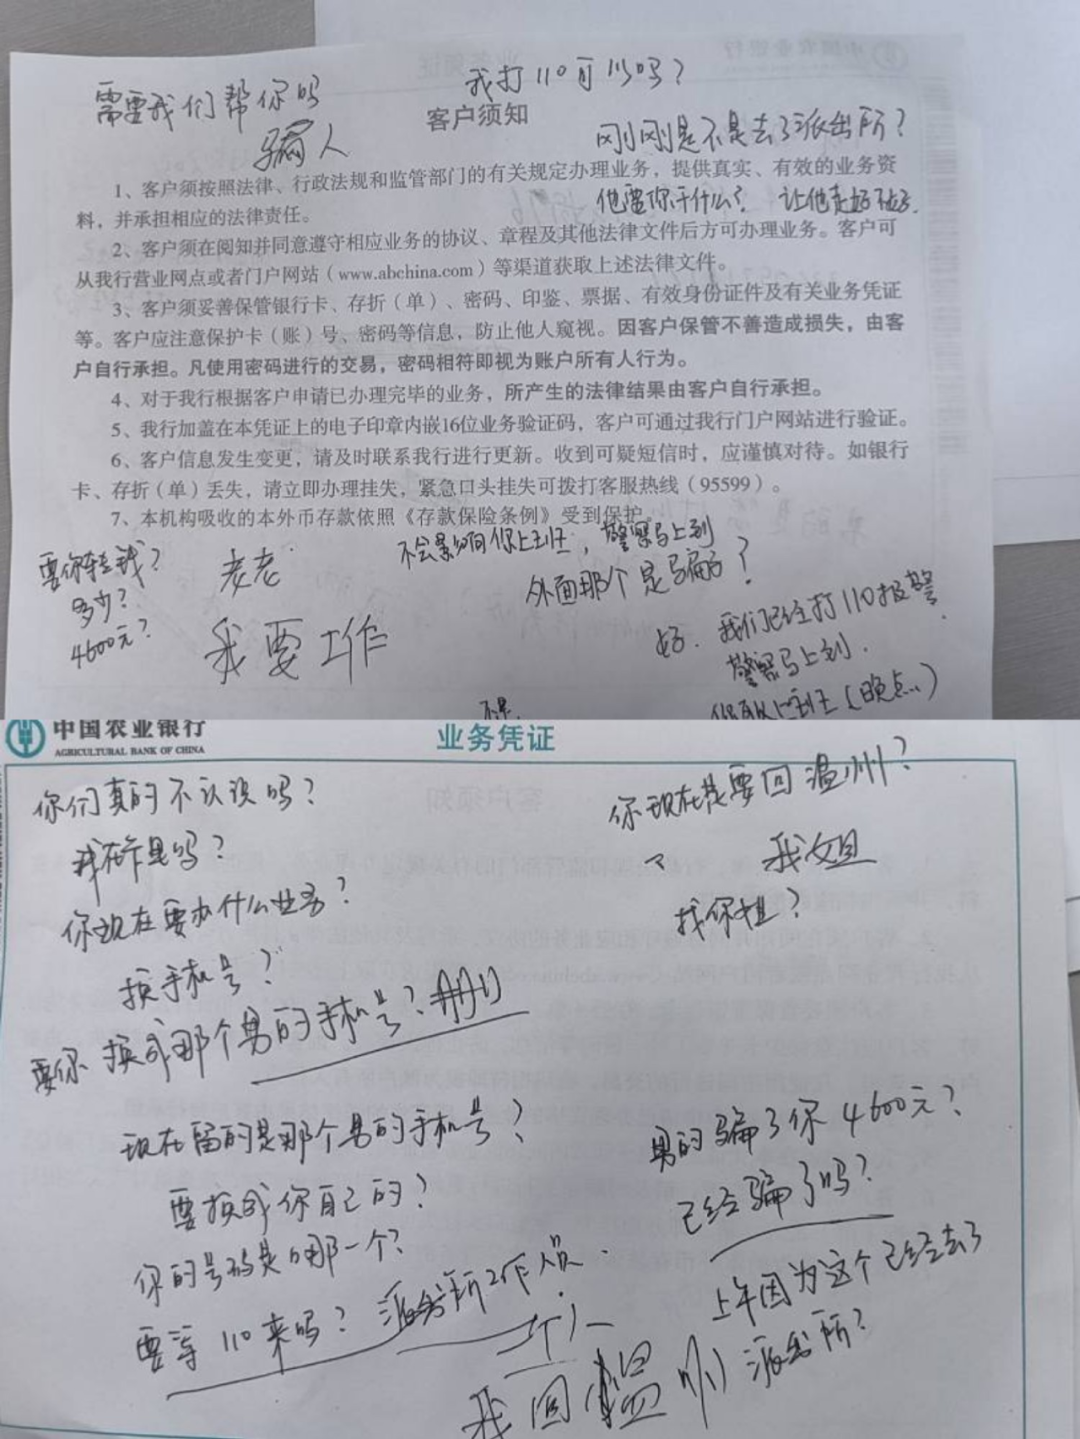 需要我们帮你吗
我打110可以吗？
客户须知
骗人
刚刚是不是去了派出所？
1、客户须按照法律、行政法规和监管部门的有关规定办理业务，提供真实、有效的业务资
他要你干什么？ 让他走好不好.
料，并承担相应的法律责任。
2、客户须在阅知并同意遵守相应业务的协议、章程及其他法律文件后方可办理业务。客户可
从我行营业网点或者门户网站（www.abchina.com）等渠道获取上述法律文件。
3、客户须妥善保管银行卡、存折（单）、密码、印鉴、票据、有效身份证件及有关业务凭证
等。客户应注意保护卡（账）号、密码等信息，防止他人窥视。因客户保管不善造成损失，由客
户自行承担。凡使用密码进行的交易，密码相符即视为账户所有人行为。
4、对于我行根据客户申请已办理完毕的业务，所产生的法律结果由客户自行承担。
5、我行加盖在本凭证上的电子印章内嵌16位业务验证码，客户可通过我行门户网站进行验证。
6、客户信息发生变更，请及时联系我行进行更新。收到可疑短信时，应谨慎对待。如银行
卡、存折（单）丢失，请立即办理挂失，紧急口头挂失可拨打客服热线（95599）。
7、本机构吸收的本外币存款依照《存款保险条例》受到保护。
不会影响你上班，警察马上到
外面那个是骗子？
要你转钱？
多少？
4600元？
老老
我要工作
好. 我们已经打110报警.
警察马上到.
上班（晚点..）
中国农业银行
AGRICULTURAL BANK OF CHINA
业务凭证
你们真的不认识吗？
你现在是要回温州？
我姐
找你姐？
你现在要办什么业务？
换手机号？
要你换成那个男的手机号？
现在留的是那个男的手机号？
要换成你自己的？
你的号码是哪一个？
要等110来吗？ 派出所工作人员.
男的骗了你4600元？
已经骗了吗？
上午因为这个已经去了
派出所？
我回温州